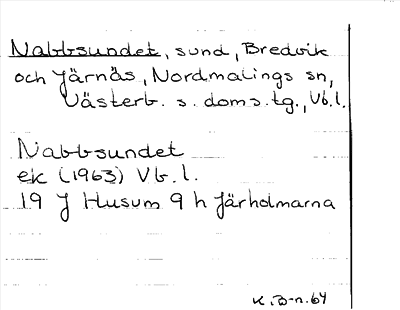 Nabbsundet, sund, Bredvik
och Järnäs, Nordmalings sn,
Västerb. s. doms.tg., Vb.l.
Nabbsundet
ek (1963) Vb.l.
19 J Husum 9 h Järholmarna
K.B-n.64